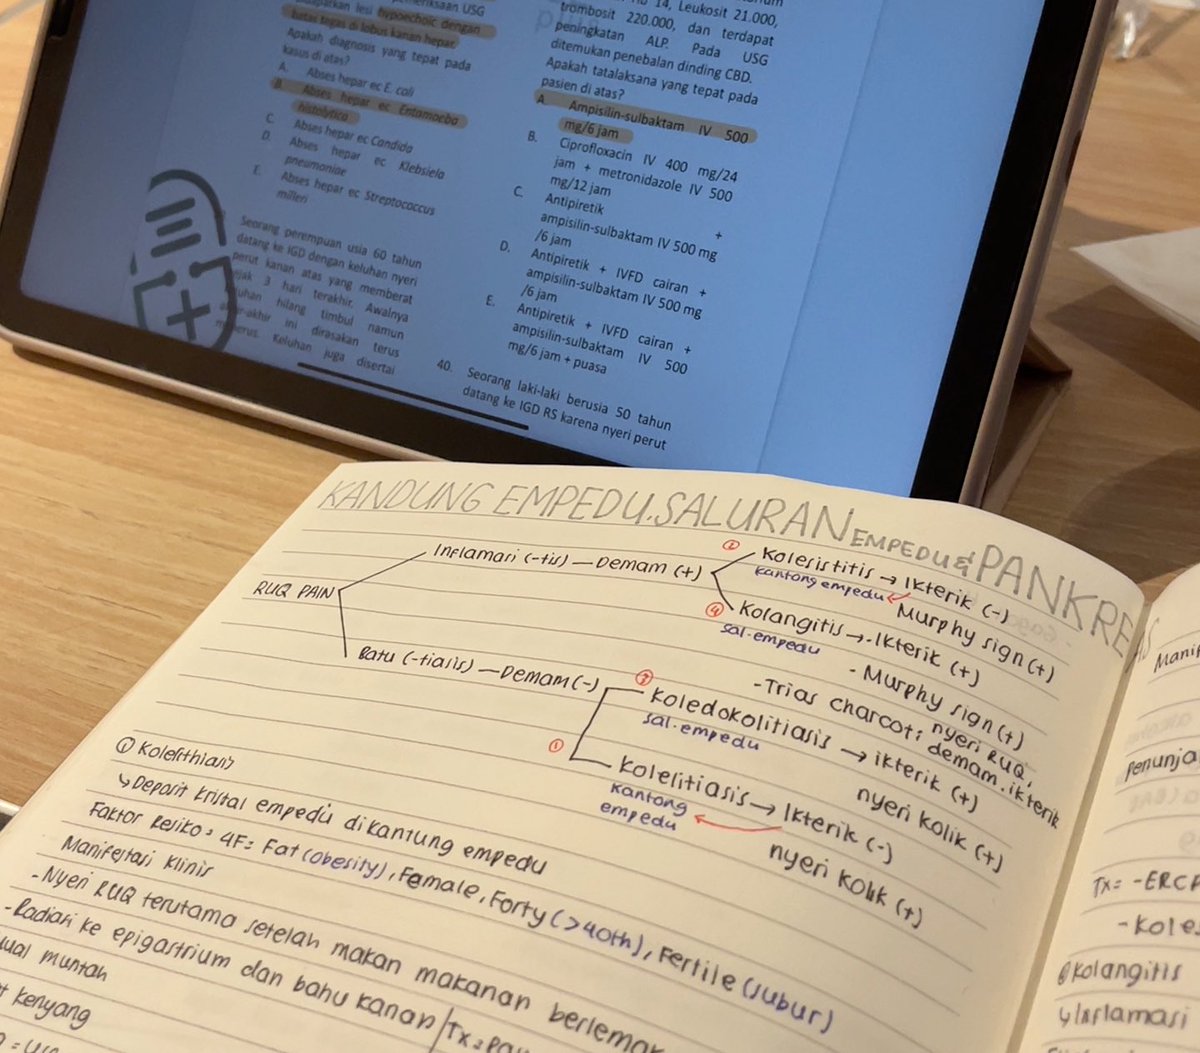 pemeriksaan USG
lesi hypoechoic dengan
batas tegas di lobus kanan hepar.
Apakah diagnosis yang tepat pada
kasus di atas?
A. Abses hepar ec E. coli
B. Abses hepar ec Entamoeba
histolytica
C. Abses hepar ec Candida
D. Abses hepar ec Klebsiela
pneumoniae
E. Abses hepar ec Streptococcus
milleri
Seorang perempuan usia 60 tahun
datang ke IGD dengan keluhan nyeri
perut kanan atas yang memberat
3 hari terakhir. Awalnya
hilang timbul namun
ini dirasakan terus
Keluhan juga disertai
14, Leukosit 21.000,
trombosit 220.000, dan terdapat
peningkatan ALP. Pada USG
ditemukan penebalan dinding CBD.
Apakah tatalaksana yang tepat pada
pasien di atas?
A. Ampisilin-sulbaktam IV 500
mg/6 jam
B. Ciprofloxacin IV 400 mg/24
jam + metronidazole IV 500
mg/12 jam
C. Antipiretik +
ampisilin-sulbaktam IV 500 mg
/6 jam
D. Antipiretik + IVFD cairan +
ampisilin-sulbaktam IV 500 mg
/6 jam
E. Antipiretik + IVFD cairan +
ampisilin-sulbaktam IV 500
mg/6 jam + puasa
40. Seorang laki-laki berusia 50 tahun
datang ke IGD RS karena nyeri perut
KANDUNG EMPEDU. SALURAN EMPEDU & PANKREAS
RUQ PAIN
Inflamasi (-tis) — Demam (+)
② Kolesistitis → Ikterik (-)
kantong empedu
Murphy sign (+)
④ Kolangitis → - Ikterik (+)
sal. empedu
- Murphy sign (+)
- Trias charcot: nyeri RUQ,
demam. ikterik
Batu (-tiasis) — Demam (-)
③ Koledokolitiasis → ikterik (+)
sal. empedu
nyeri kolik (+)
① Kolelitiasis → Ikterik (-)
kantong
empedu
nyeri kolik (+)
① Kolelithiasis
↳ Deposit kristal empedu di kantung empedu
Faktor Resiko: 4F= Fat (obesity), Female, Forty (>40th), Fertile (subur)
Manifestasi klinis
- Nyeri RUQ terutama setelah makan makanan berlemak
- Radiasi ke epigastrium dan bahu kanan
muntah
kenyang
Tx=
Penunja
Tx= - ERCP
- Koles
④ Kolangitis
↳ Inflamasi